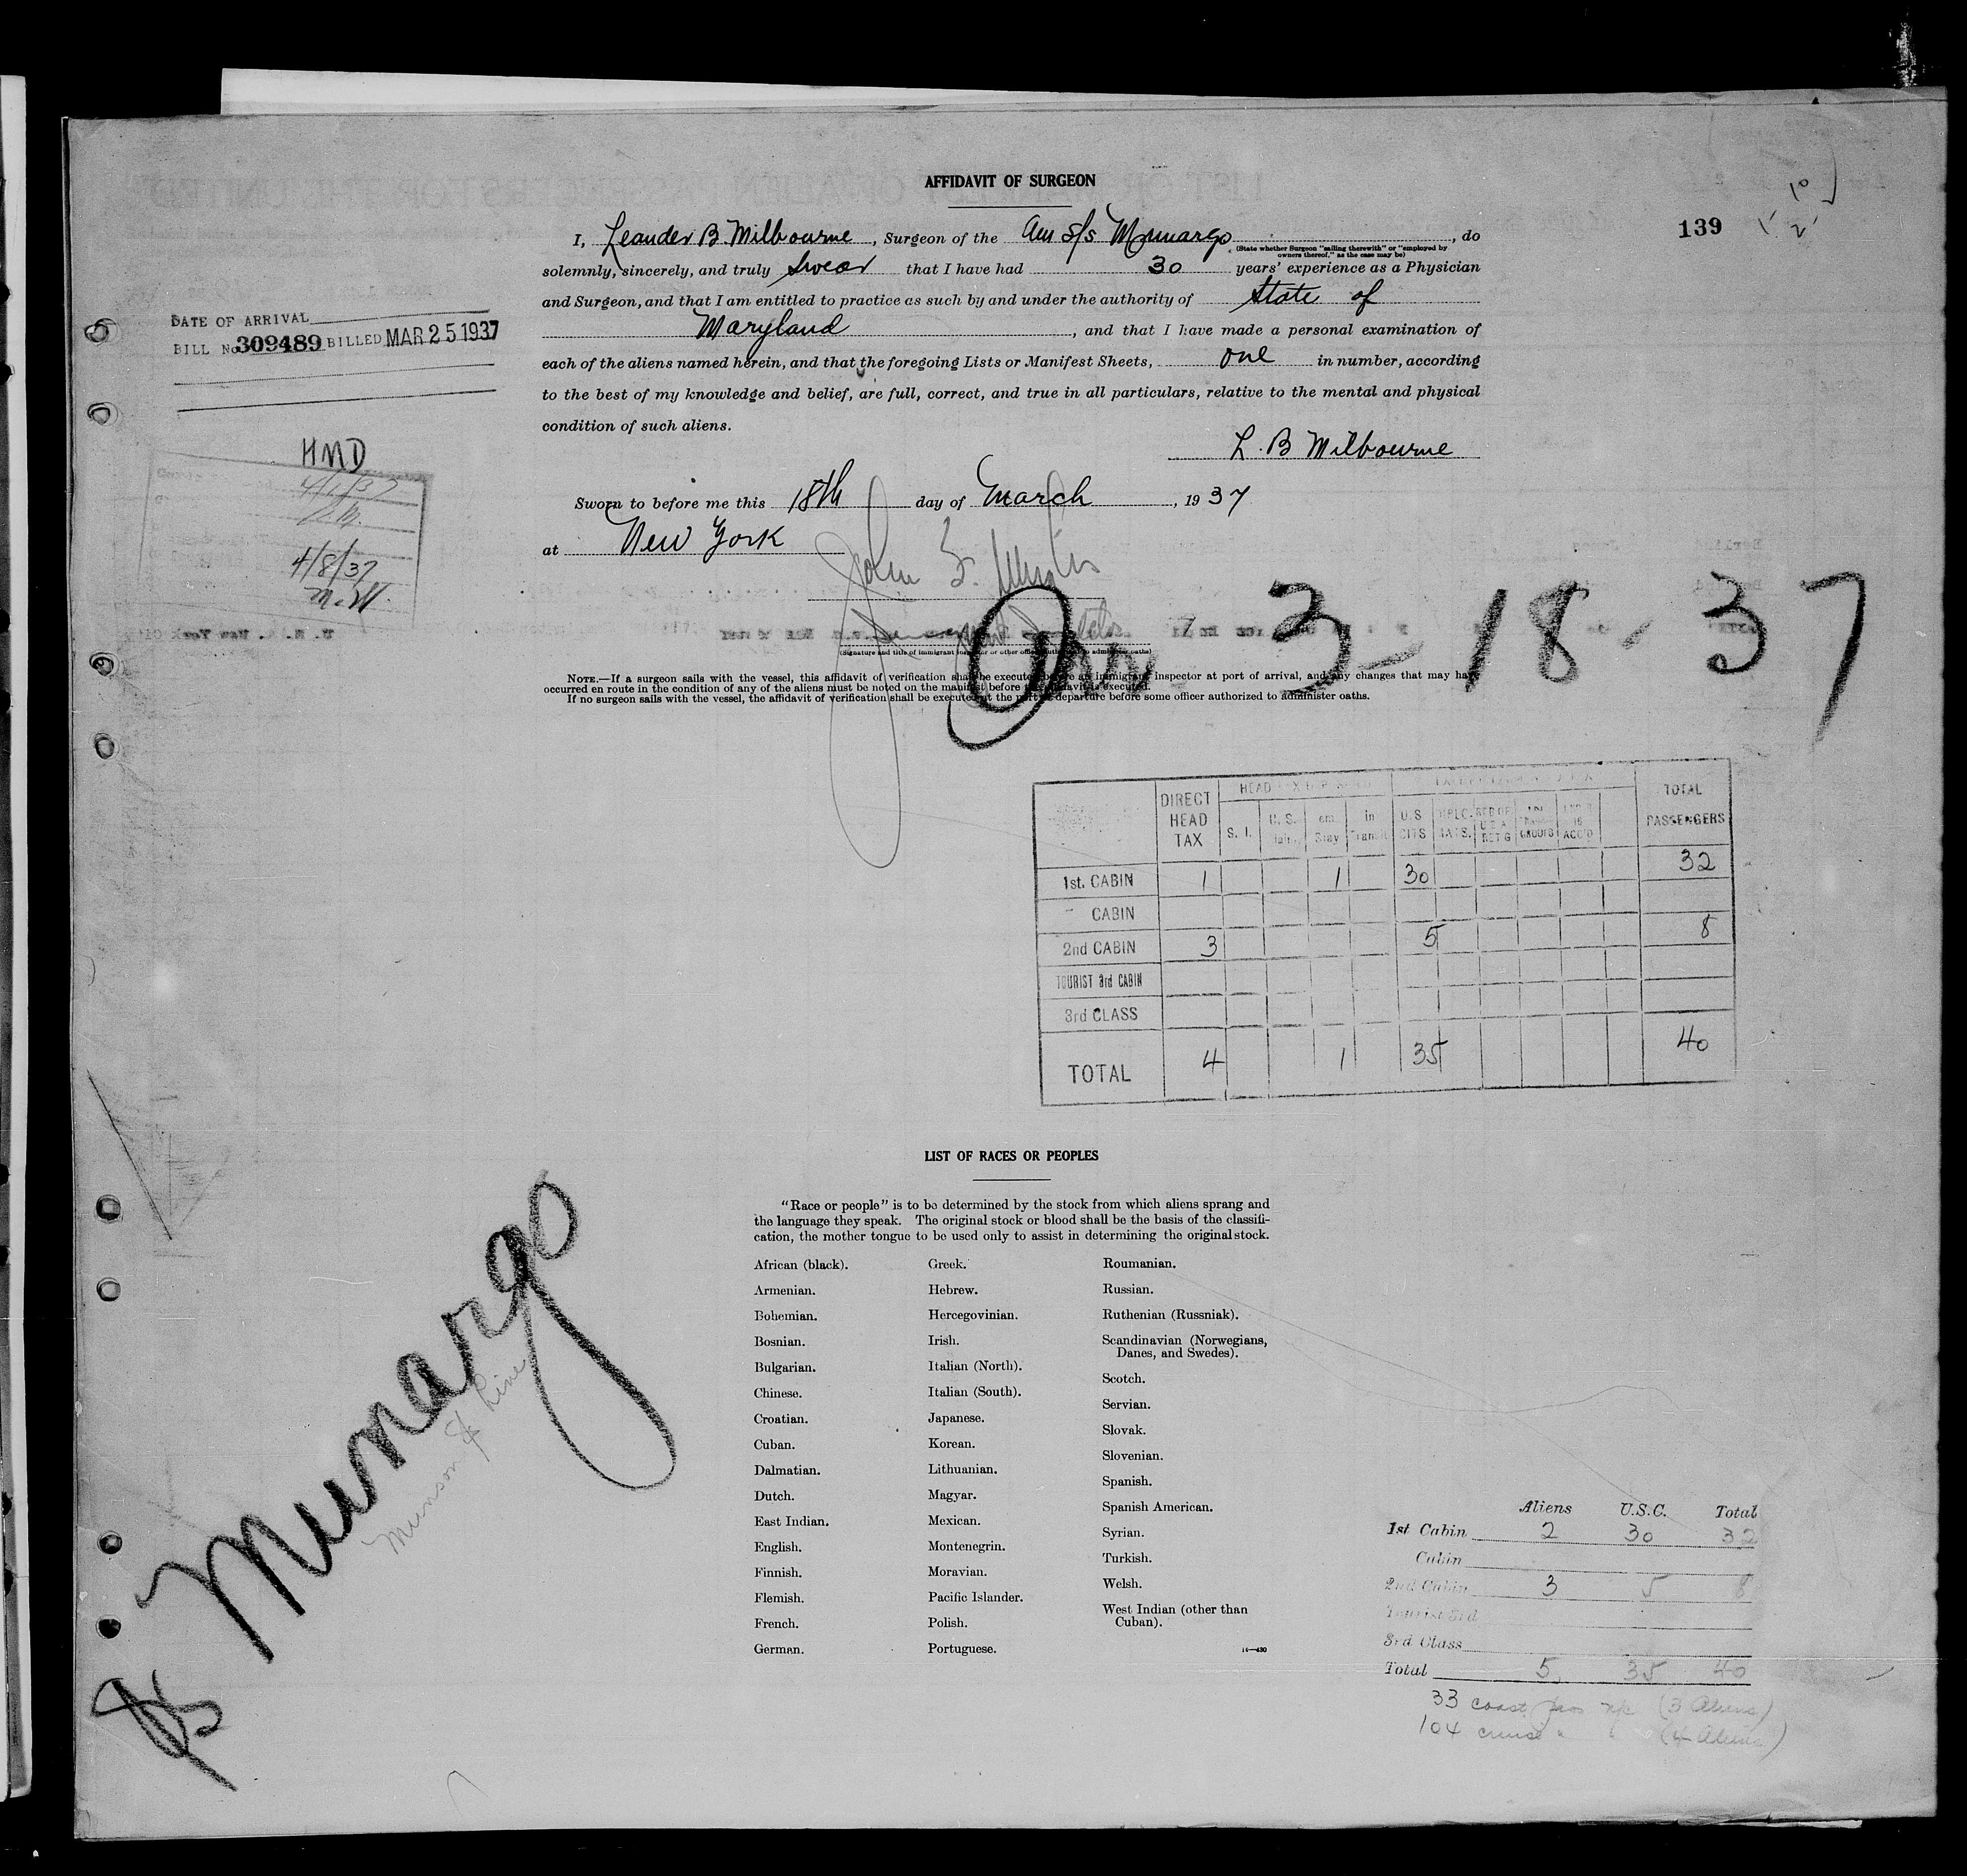 AFFIDAVIT OF SURGEON
139
I, Leander B. Milbourne, Surgeon of the Am S/s Munargo, do
(State whether Surgeon "sailing therewith" or "employed by
owners thereof," as the case may be)
solemnly, sincerely, and truly swear that I have had 30 years' experience as a Physician
and Surgeon, and that I am entitled to practice as such by and under the authority of State of
Maryland, and that I have made a personal examination of
each of the aliens named herein, and that the foregoing Lists or Manifest Sheets, one in number, according
to the best of my knowledge and belief, are full, correct, and true in all particulars, relative to the mental and physical
condition of such aliens.
L. B Milbourne
Sworn to before me this 18th day of March, 1937
at New York
DATE OF ARRIVAL
BILL No. 309489 BILLED MAR 25 1937
HMD
4/1/37
4/8/37
Arr 3-18-37
(Signature and title of immigrant inspector or other officer authorized to administer oaths)
NOTE.—If a surgeon sails with the vessel, this affidavit of verification shall be executed before an immigrant inspector at port of arrival, and any changes that may have
occurred en route in the condition of any of the aliens must be noted on the manifest before the affidavit is executed.
If no surgeon sails with the vessel, the affidavit of verification shall be executed at the port of departure before some officer authorized to administer oaths.
DIRECT HEAD TAX
HEAD TAX
S. I.
U. S.
Stay
in Transit
U.S. CITS
TOTAL PASSENGERS
1st. CABIN 1 1 30 32
CABIN
2nd CABIN 3 5 8
TOURIST 3rd CABIN
3rd CLASS
TOTAL 4 1 35 40
LIST OF RACES OR PEOPLES
"Race or people" is to be determined by the stock from which aliens sprang and
the language they speak. The original stock or blood shall be the basis of the classifi-
cation, the mother tongue to be used only to assist in determining the original stock.
African (black).
Armenian.
Bohemian.
Bosnian.
Bulgarian.
Chinese.
Croatian.
Cuban.
Dalmatian.
Dutch.
East Indian.
English.
Finnish.
Flemish.
French.
German.
Greek.
Hebrew.
Hercegovinian.
Irish.
Italian (North).
Italian (South).
Japanese.
Korean.
Lithuanian.
Magyar.
Mexican.
Montenegrin.
Moravian.
Pacific Islander.
Polish.
Portuguese.
Roumanian.
Russian.
Ruthenian (Russniak).
Scandinavian (Norwegians,
Danes, and Swedes).
Scotch.
Servian.
Slovak.
Slovenian.
Spanish.
Spanish American.
Syrian.
Turkish.
Welsh.
West Indian (other than
Cuban).
S/S Munargo
Munson SS Line
Aliens U.S.C. Total
1st Cabin 2 30 32
Cabin
2nd Cabin 3 5 8
Tourist 3rd
3rd Class
Total 5 35 40
33 coast (3 Aliens)
104 cruise " (4 Aliens)